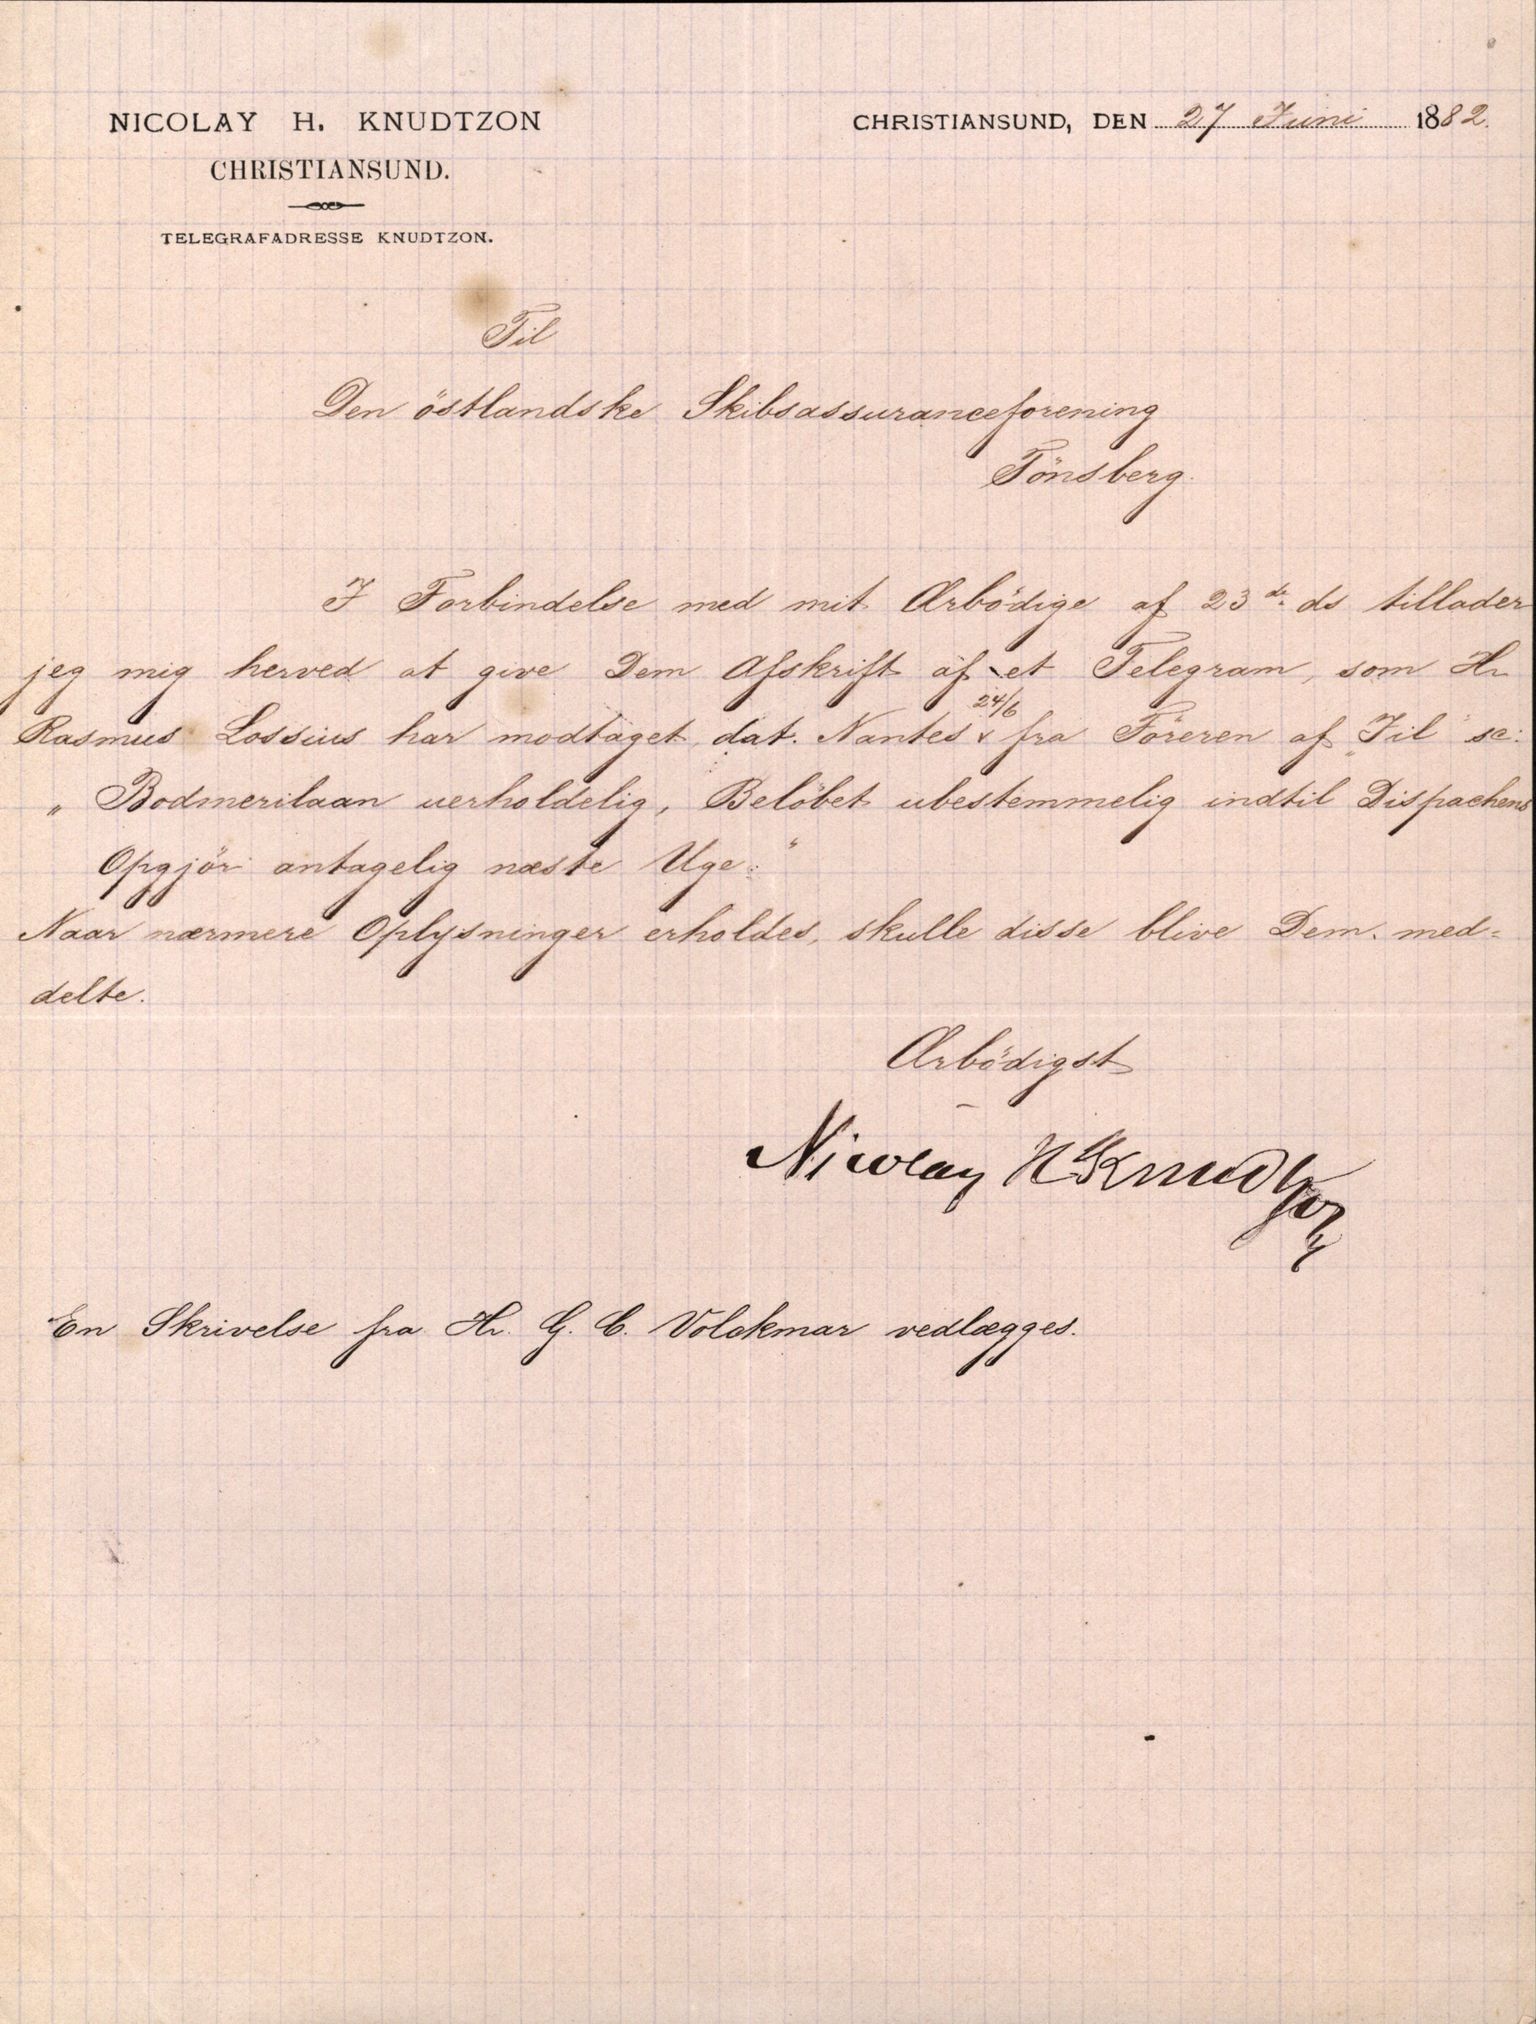 NICOLAY H. KNUDTZON
CHRISTIANSUND.
TELEGRAFADRESSE KNUDTZON.
CHRISTIANSUND, DEN 27 Juni 1882.
Til
Den östlandske Skibsassuranceforening
Tönsberg.
I Forbindelse med mit Ærbödige af 23de ds tillader
jeg mig herved at give Dem Afskrift af et Telegram, som Hr
Rasmus Lossius har modtaget, dat. Nantes 24/6 fra Föreren af "Jil" sc:
„ Bodmerilaan uerholdelig, Belöbet ubestemmelig indtil Dispachens
Opgjör antagelig næste Uge. "
Naar nærmere Oplysninger erholdes, skulle disse blive Dem. med=
delte.
Ærbödigst
Nicolay H Knudtzon
En Skrivelse fra Hr. G. C. Volckmar vedlægges.